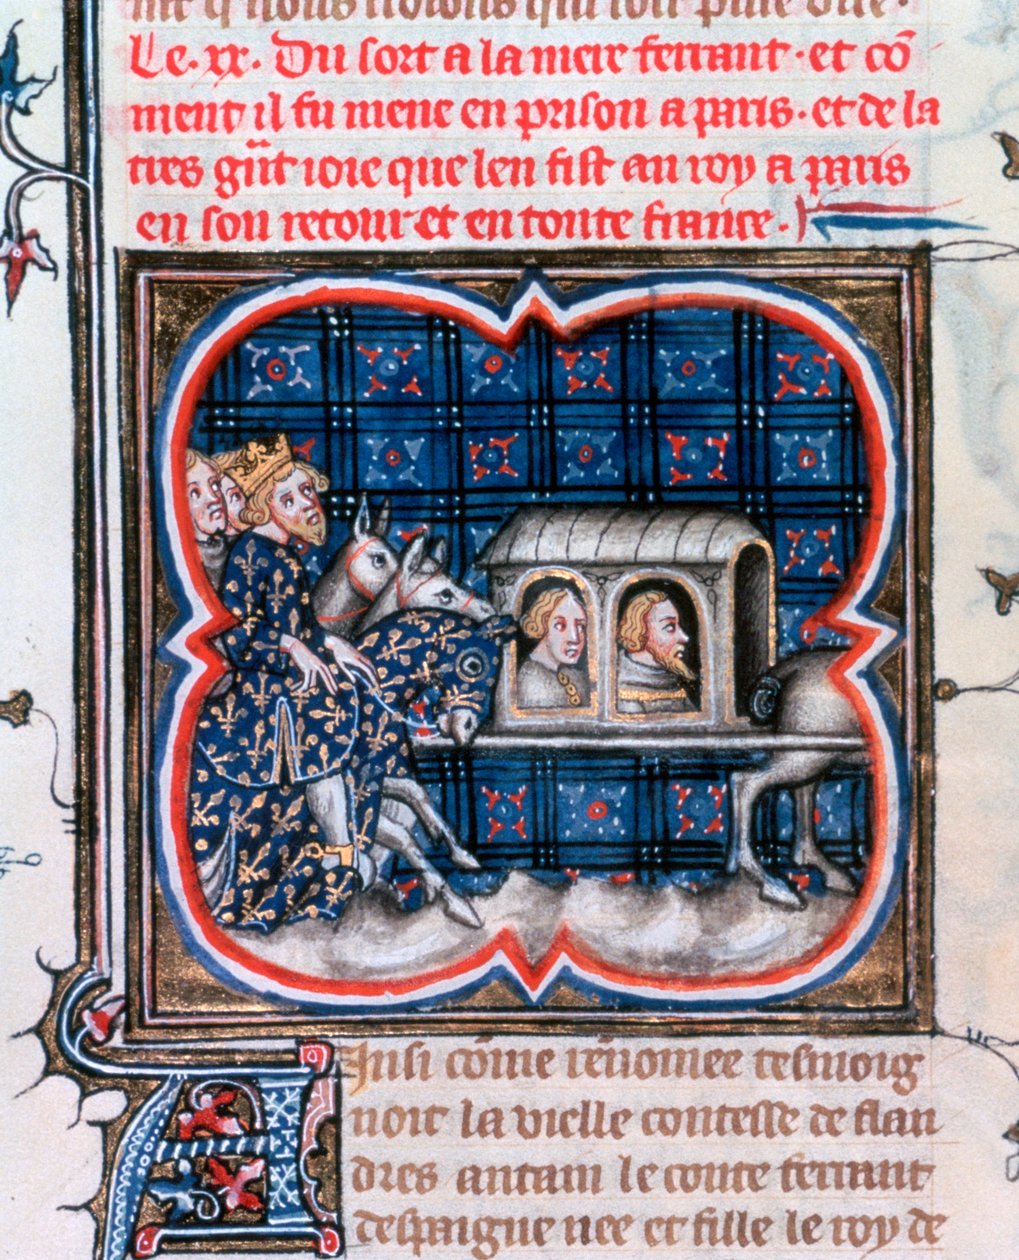 Le .xx. Du sort a la mere ferrant. et cō
ment il fu mene en prison a paris. et de la
tres gn̄t ioie que len fist au roy a paris
en son retour et en toute france.
Ainsi cōme renōmee tesmoig
noit la vielle contesse de flan
dres antain le conte ferrant
despaigne nee et fille le roy de